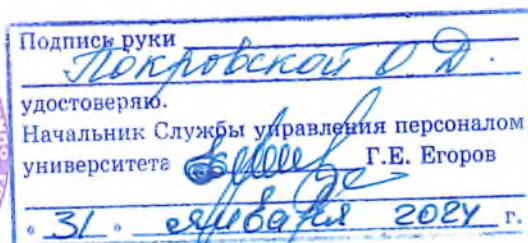 Подпись руки
Покровской О Д.
удостоверяю.
Начальник Службы управления персоналом
университета Г.Е. Егоров
« 31 » января 2024 г.